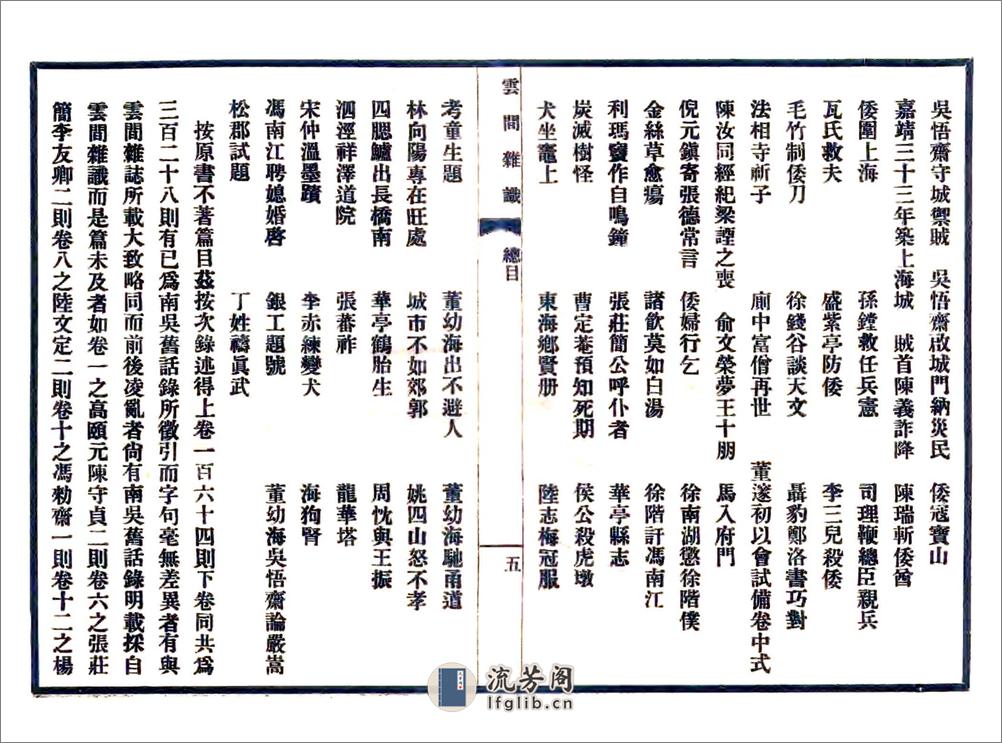 吳悟齋守城禦賊　吳悟齋啟城門納災民　倭寇寶山
嘉靖三十三年築上海城　賊首陳義詐降　陳瑞斬倭酋
倭圍上海　孫鏜救任兵憲　司理鞭總臣親兵
瓦氏救夫　盛紫亭防倭　李三兒殺倭
毛竹制倭刀　徐錢谷談天文　聶豹鄭洛書巧對
法相寺祈子　廁中富僧再世　董邃初以會試備卷中式
陳汝同經紀梁諲之喪　俞文榮夢王十朋　馬入府門
倪元鎮寄張德常言　倭婦行乞　徐南湖懲徐階僕
金絲草愈瘍　諸飲莫如白湯　徐階訐馮南江
利瑪竇作自鳴鐘　張莊簡公呼仆者　華亭縣志
炭滅樹怪　曹定菴預知死期　侯公殺虎墩
犬坐竈上　東海鄉賢册　陸志梅冠服
雲間雜識　總目　五
考童生題　董幼海出不避人　董幼海馳甬道
林向陽專在旺處　城市不如郊郭　姚四山怒不孝
四腮鱸出長橋南　華亭鶴胎生　周忱與王振
泗涇祥澤道院　張蕃祚　龍華塔
宋仲溫墨蹟　李赤練變犬　海狗腎
馮南江聘媳婚啓　銀工題號　董幼海吳悟齋論嚴嵩
松郡試題　丁姓禱眞武
按原書不著篇目茲按次錄述得上卷一百六十四則下卷同共爲
三百二十八則有已爲南吳舊話錄所徵引而字句毫無差異者有與
雲間雜誌所載大致略同而前後凌亂者尙有南吳舊話錄明載採自
雲間雜識而是篇未及者如卷一之高頤元陳守貞二則卷六之張莊
簡李友卿二則卷八之陸文定二則卷十之馮勑齋一則卷十二之楊
流芳阁
lfglib.cn